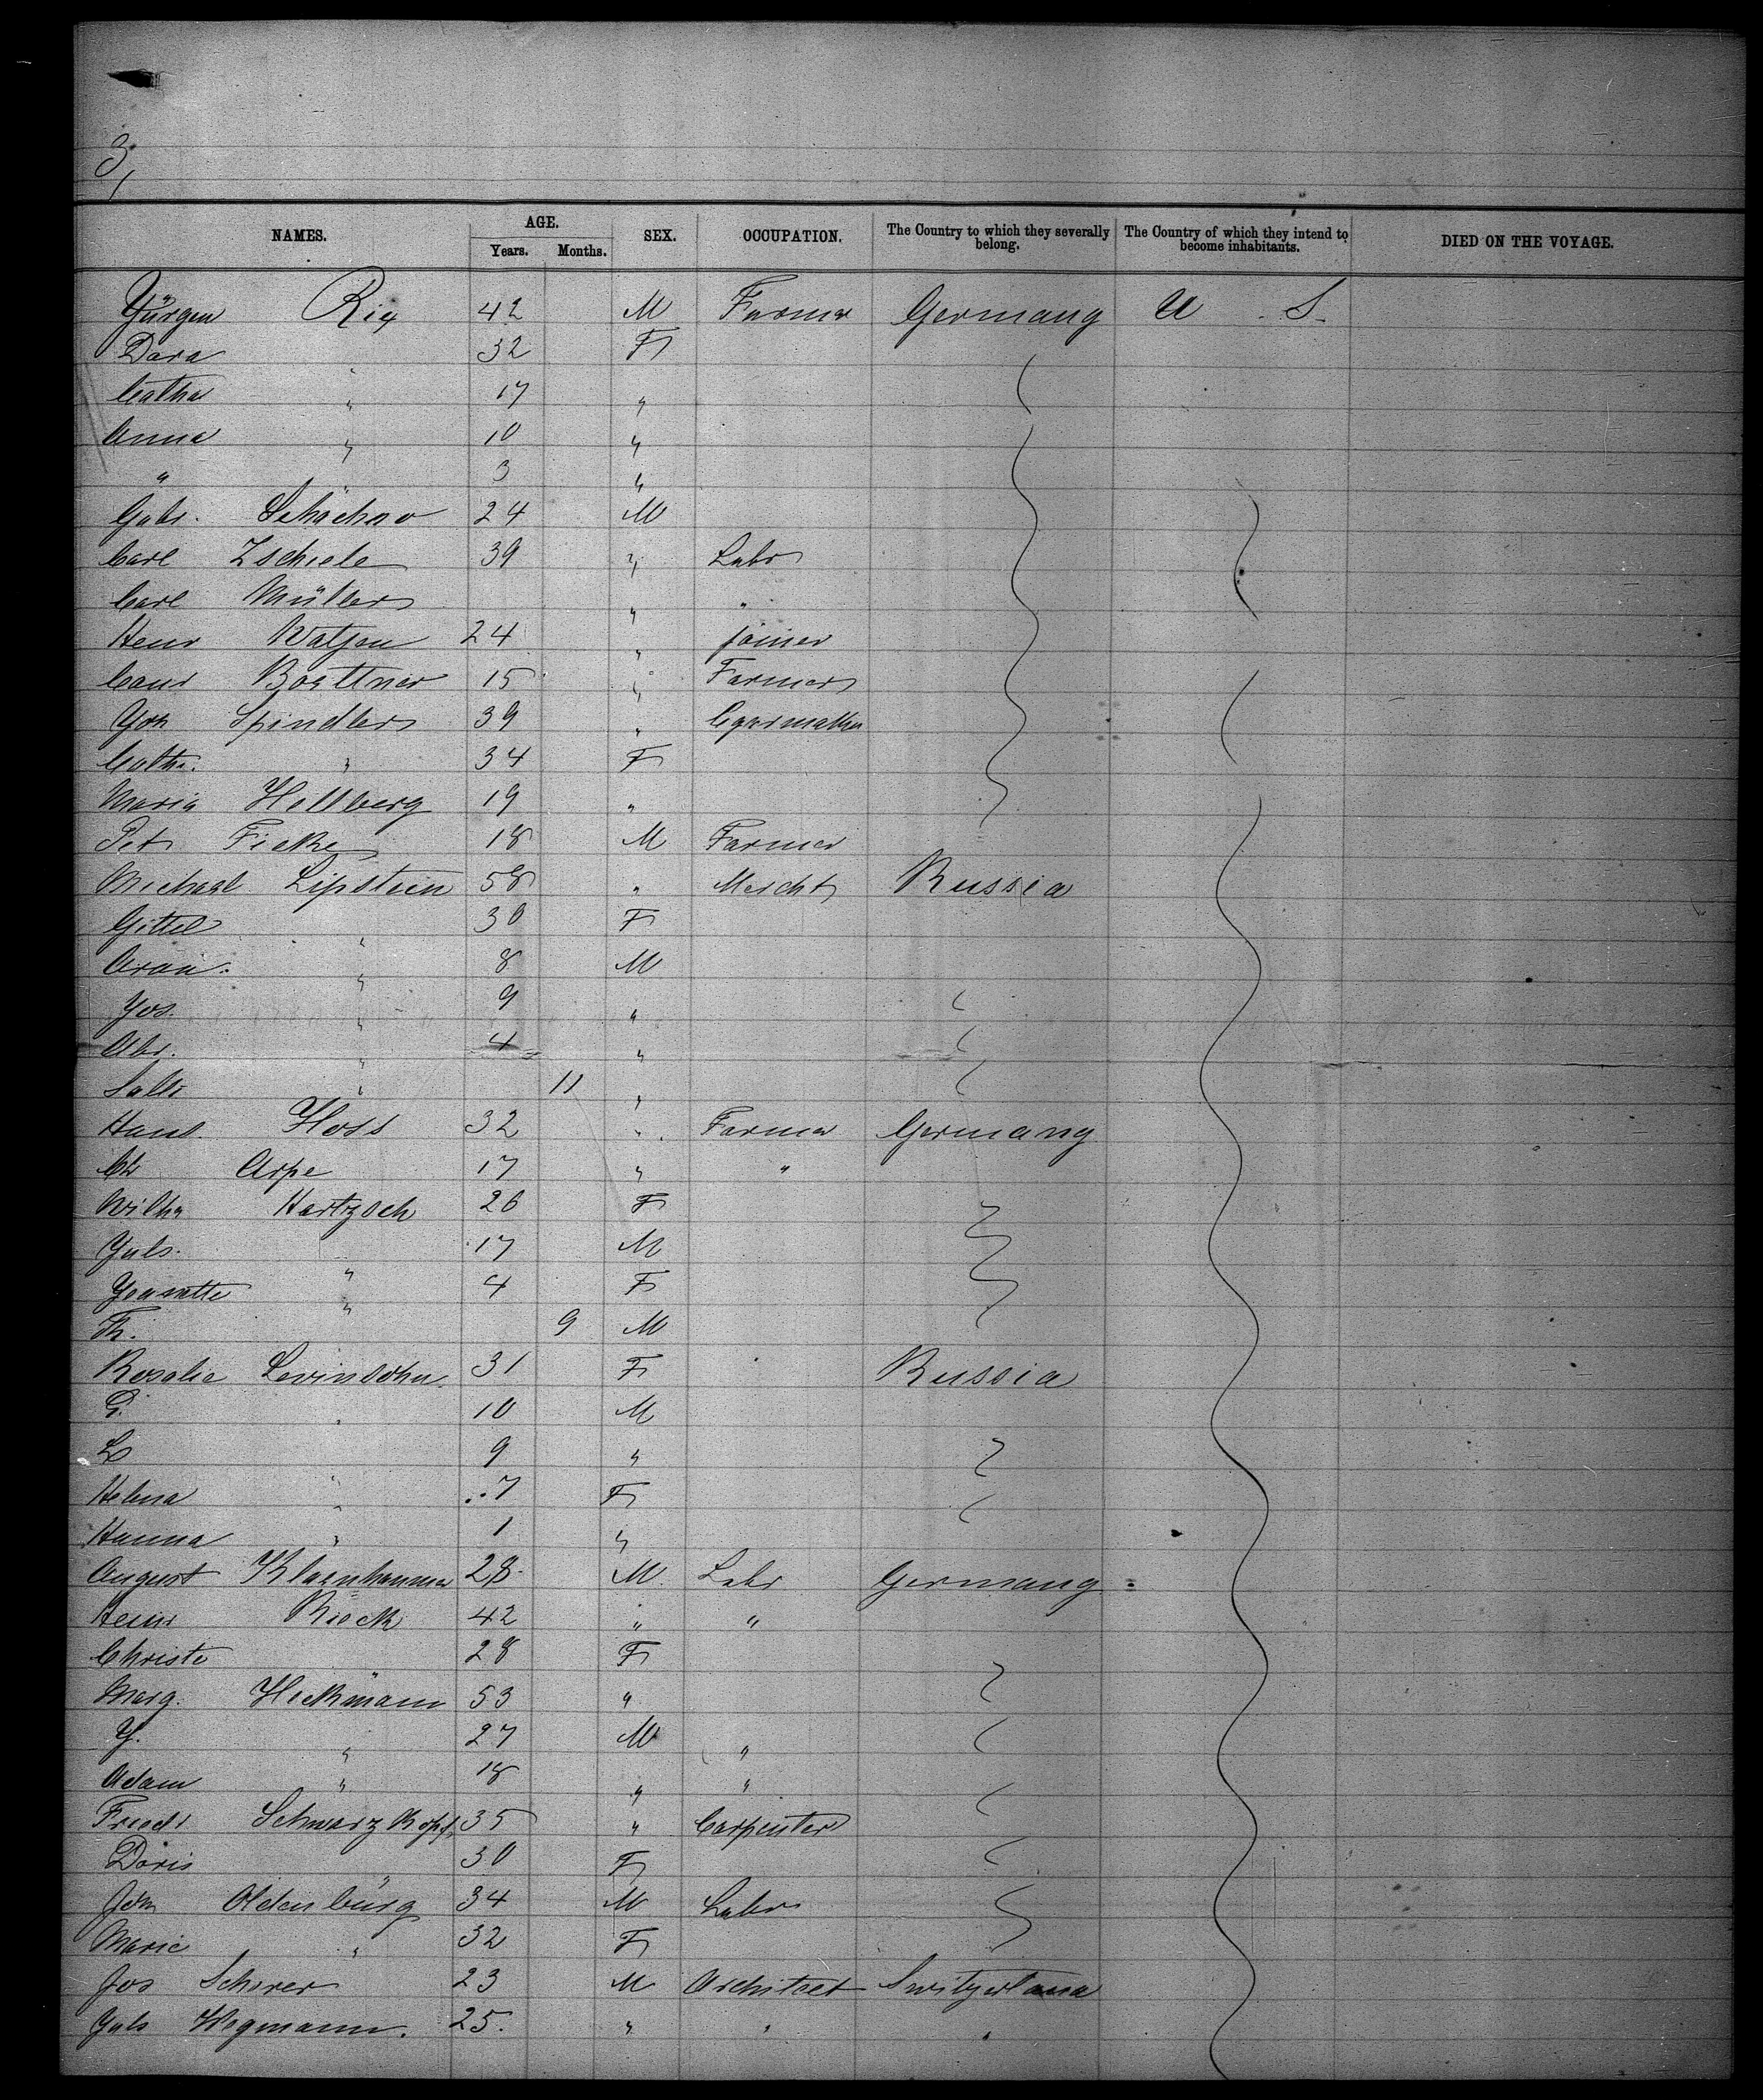 3,
NAMES. AGE. SEX. OCCUPATION. The Country to which they severally belong. The Country of which they intend to become inhabitants. DIED ON THE VOYAGE.
Years. Months.
Jürgen Rix 42 M Farmer Germany U S
Dora 32 F
Catha " 17 "
Anna " 10 "
" " 3 "
Gabr. Schachno 24 M
Carl Zschiele 39 " Labr
Carl Müller " "
Henr Watjen 24 " joiner
Conr Boettner 15 " Farmer
Joh Spindler 39 " Cigarmaker
Catha. " 34 F
Maria Hellberg 19 "
Pet Ficke 18 M Farmer
Michael Lipstein 58 " Mercht Russia
Gittel " 30 F
Aron. " 8 M
Jos. " 9 "
Abr. " 4 "
Salli " 11 "
Hans. Hoss 32 " Farmer Germany
Ch Arpe 17 " "
Wilha Hartzsch 26 F
Juls. " 17 M
Jeanette " 4 F
Th. 9 M
Rosalie Levinsohn 31 F Russia
G. " 10 M
L 9 "
Helena " 7 F
Hanna " 1 "
August Klaenhammer 28 M. Labr Germany
Henr Rieck 42 " "
Christe " 28 F
Marg. Heckmann 53 "
J. " 27 M "
Adam " 18 " "
Friedr Schwarzkopf 35 " Carpenter
Doris " 30 F
Joh Oldenburg 34 M Labr
Marie " 32 F
Jos Scherer 23 M Architect Switzerland
Juls Wegmann. 25. " " "